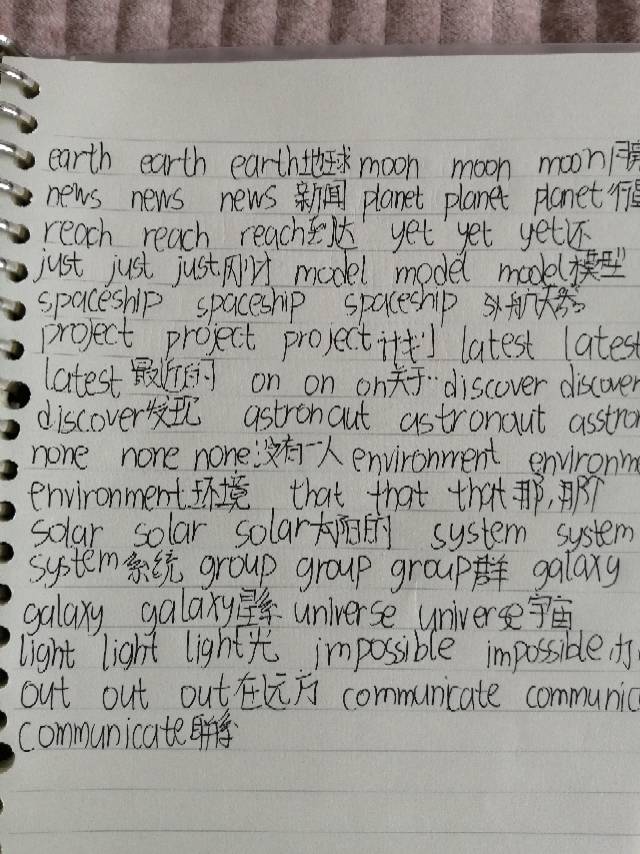 earth earth earth地球 moon moon moon月亮
news news news 新闻 planet planet planet 行星
reach reach reach到达 yet yet yet还
just just just刚才 model model model模型
spaceship spaceship spaceship
project project project计划 latest latest
latest 最近的 on on on关于… discover discover
discover发现 astronaut astronaut
none none none没有一人 environment
environment环境 that that that那,那个
solar solar solar太阳的 system system
system系统 group group group群 galaxy
galaxy galaxy星系 universe universe宇宙
light light light光 impossible impossible
out out out在远方 communicate
communicate联系